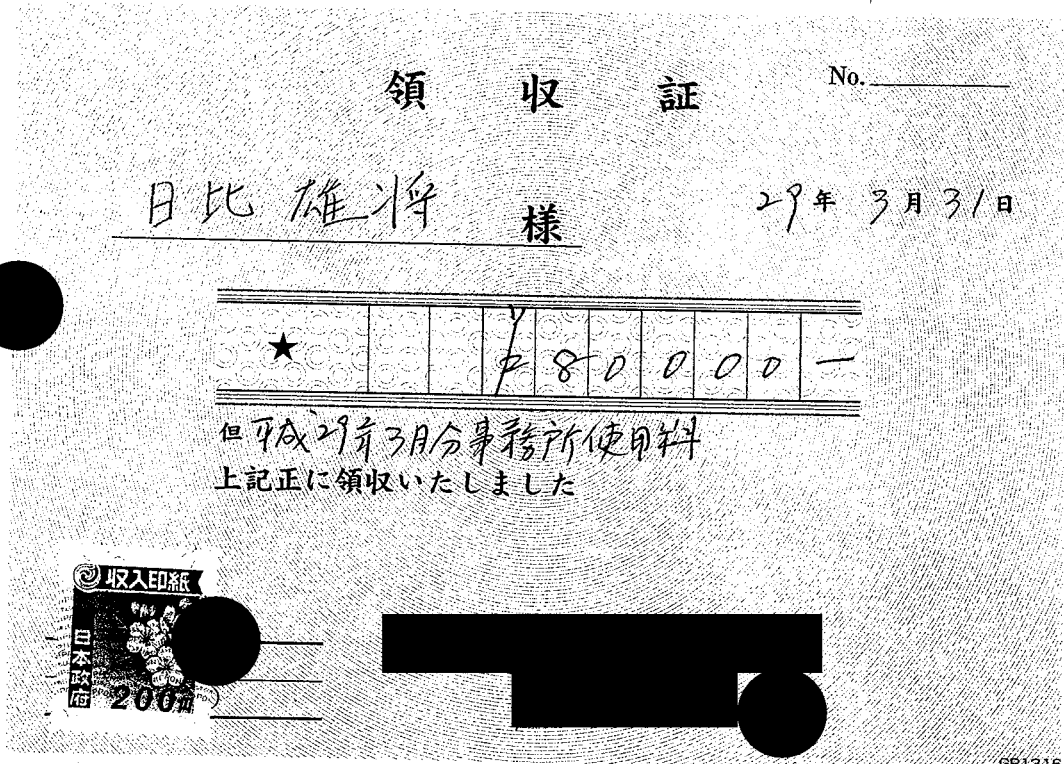 領収証
No.
日比 雄将 様
29年 3月 31日
★ ¥80000-
但 平成29年3月分事務所使用料
上記正に領収いたしました
収入印紙
日本政府
200円